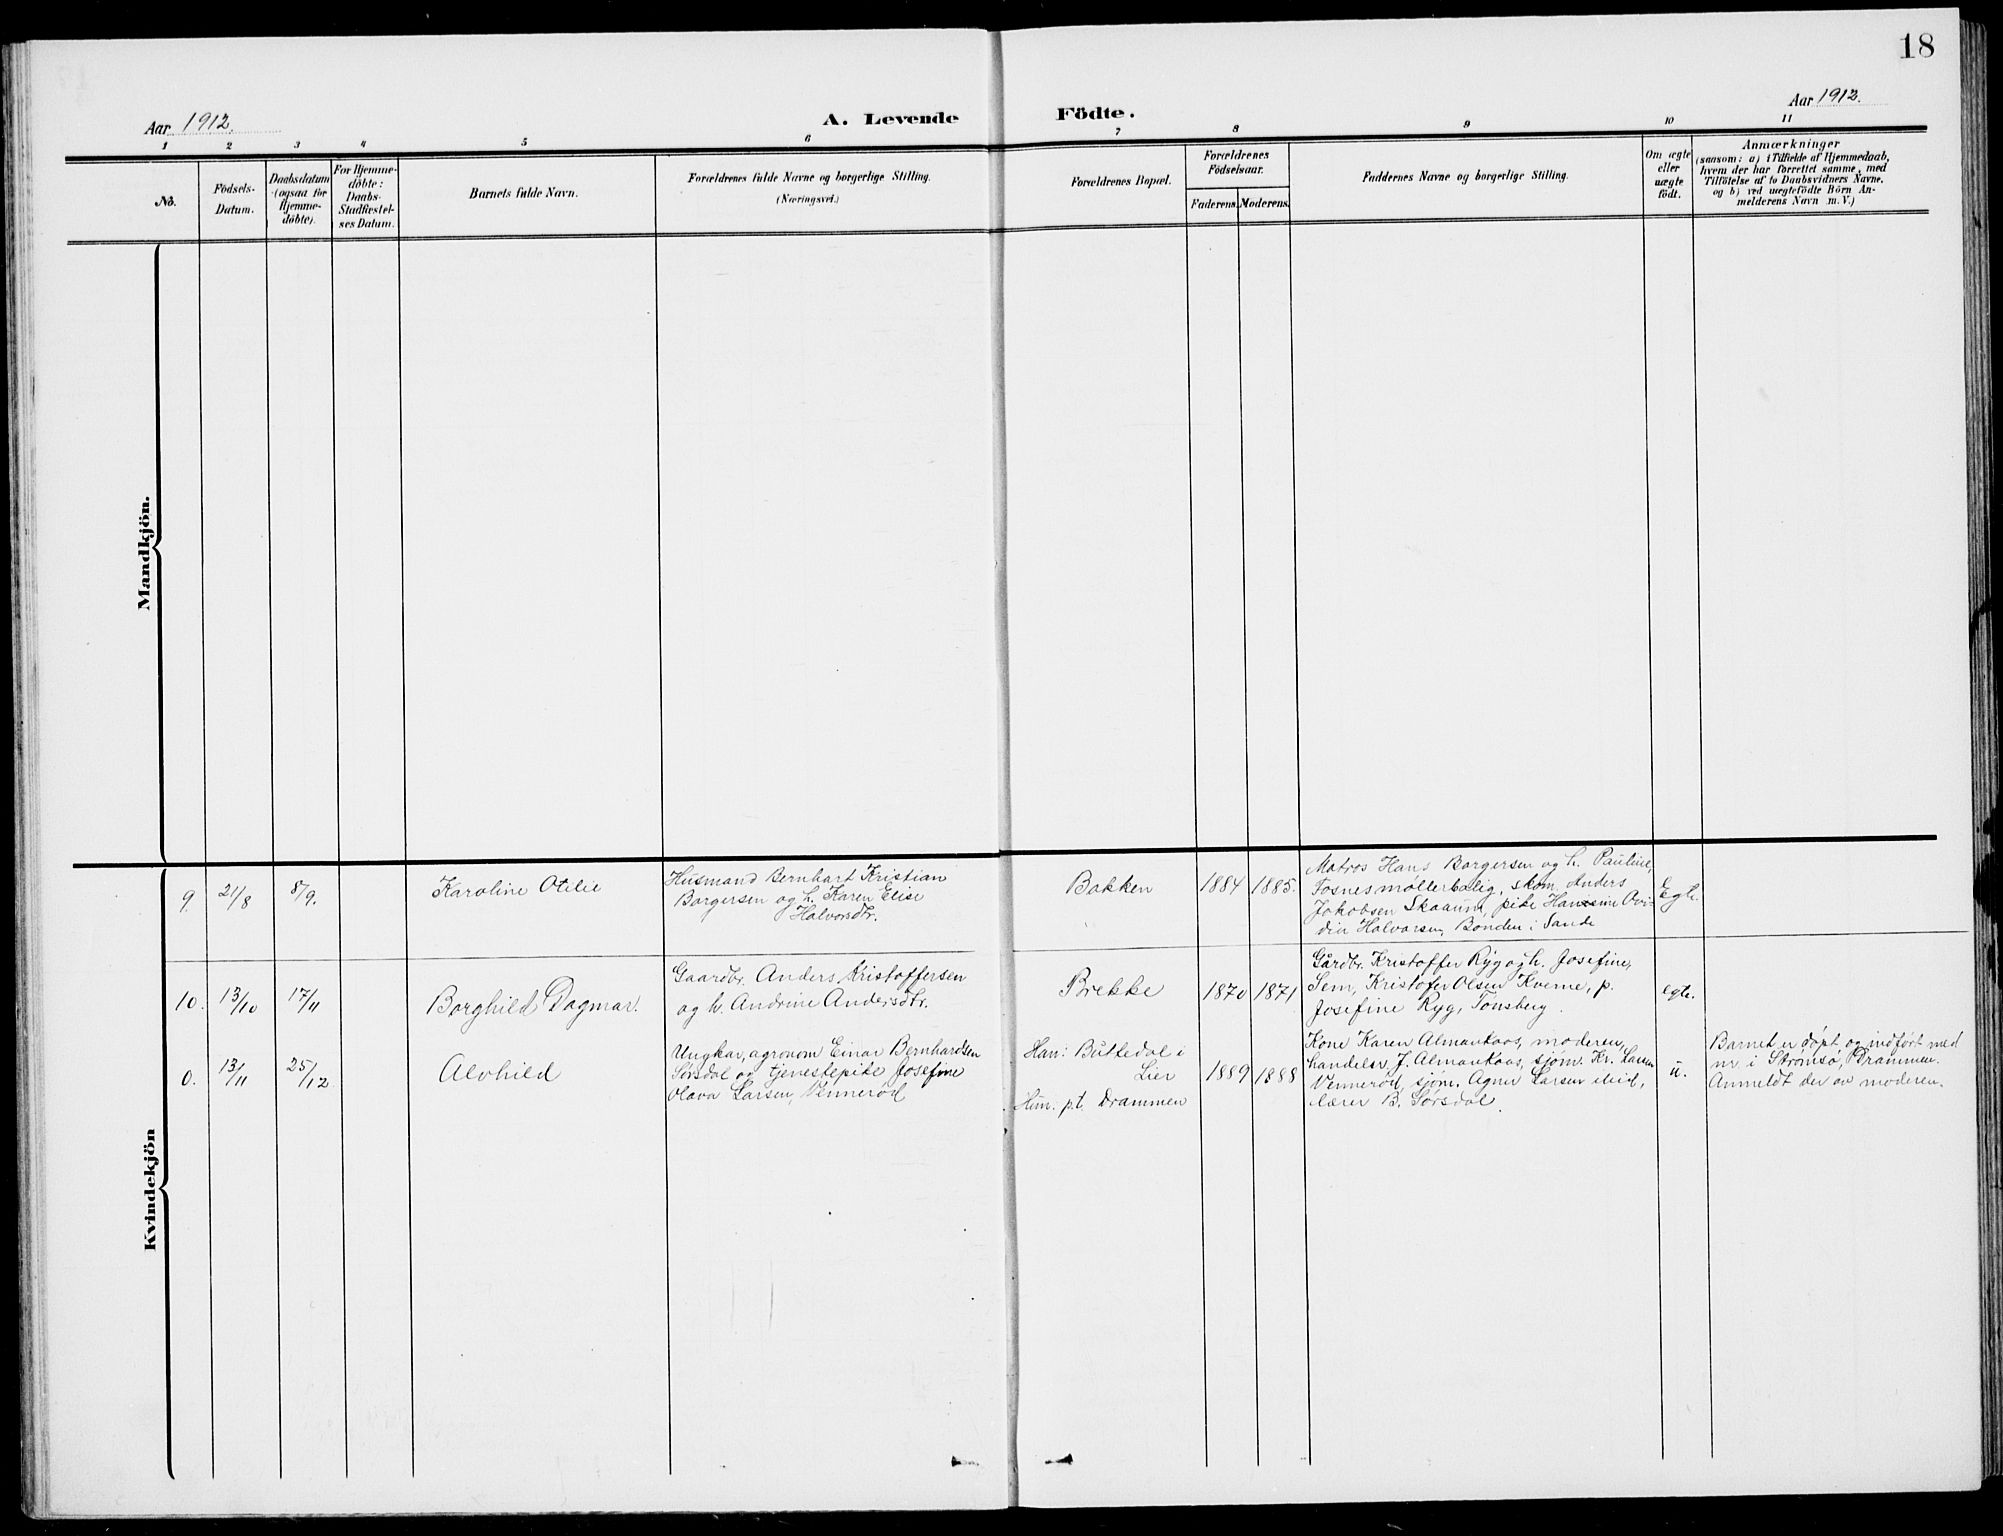 18
Aar 1912.
A. Levende
Födte.
Aar 1912.
1 2 3 4 5 6 7 8 9 10 11
No.
Födsels-
Datum.
Daabsdatum
(ogsaa for
Hjemme-
døbte).
For Hjemme-
døbte:
Daabs-
Stadfæstel-
ses Datum.
Barnets fulde Navn.
Forældrenes fulde Navne og borgerlige Stilling.
(Næringsvei.)
Forældrenes Bopæl.
Forældrenes
Födselsaar.
Faderens.
Moderens.
Faddernes Navne og borgerlige Stilling.
Om ægte
eller
uægte
født.
Anmærkninger
(saasom: a) i Tilfælde af Hjemmedaab,
hvem der har forrettet samme, med
Tilföielse af to Daabsvidners Navne,
og b) ved uægtefödte Börn An-
melderens Navn m. V.)
Mandkjön.
Kvindekjön
9.
21/8
8/9.
Karoline Otilie
Husmand Bernhart Kristian
Borgersen og h. Karen Elise
Halvorsdtr.
Bakken
1884
1885.
Matros Hans Borgersen og h. Pauline,
Fosnesmøllerbolig, skom. Anders
Jakobsen Skaaum, pike Hansine Ovi-
dia Halvorsen, Bonden i Sande
Egte.
10.
13/10
17/11
Borghild Dagmar.
Gaardbr. Anders Kristoffersen
og h. Andrine Andersdtr.
Brekke
1870
1871
Gårdbr. Kristoffer Ryg og h. Josefine,
Sem, Kristofer Olsen Kverne, p.
Josefine Ryg, Tønsberg.
egte.
0.
13/11
25/12
Alvhild
Ungkar, agronom Einar Bernhardsen
Sørsdal og tjenestepike Josefine
Olava Larsen, Vennerød
Han: Buttedal i
Lier
Hun: p.t. Drammen
1889
1888
Kone Karen Almankaas, moderen,
handelsr. J. Almankaas, sjøm. Kr. Larsen
Vennerød, sjøm. Agner Larsen ibid,
lærer B. Sørsdal.
u.
Barnet er døpt og indført med
nr i Strømsø, Drammen.
Anmeldt der av moderen.